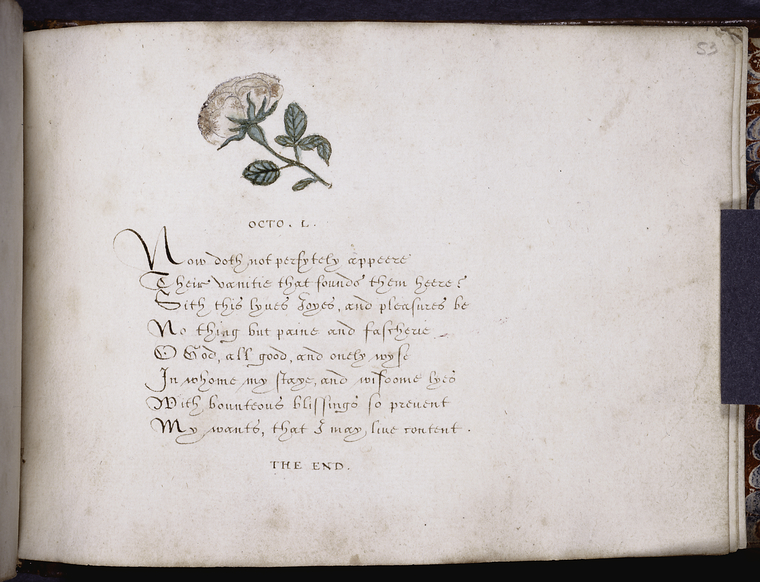 53
OCTO. L.
Now doth not perfytely appeere
Their vanitie that founds them heere?
Sith this lyues Joyes, and pleasures be
No thing but paine and fascherie
O God, all good, and onely wyse
In whome my staye, and wisdome lyes
With bounteous blissings so preuent
My wants, that I may liue content.
THE END.